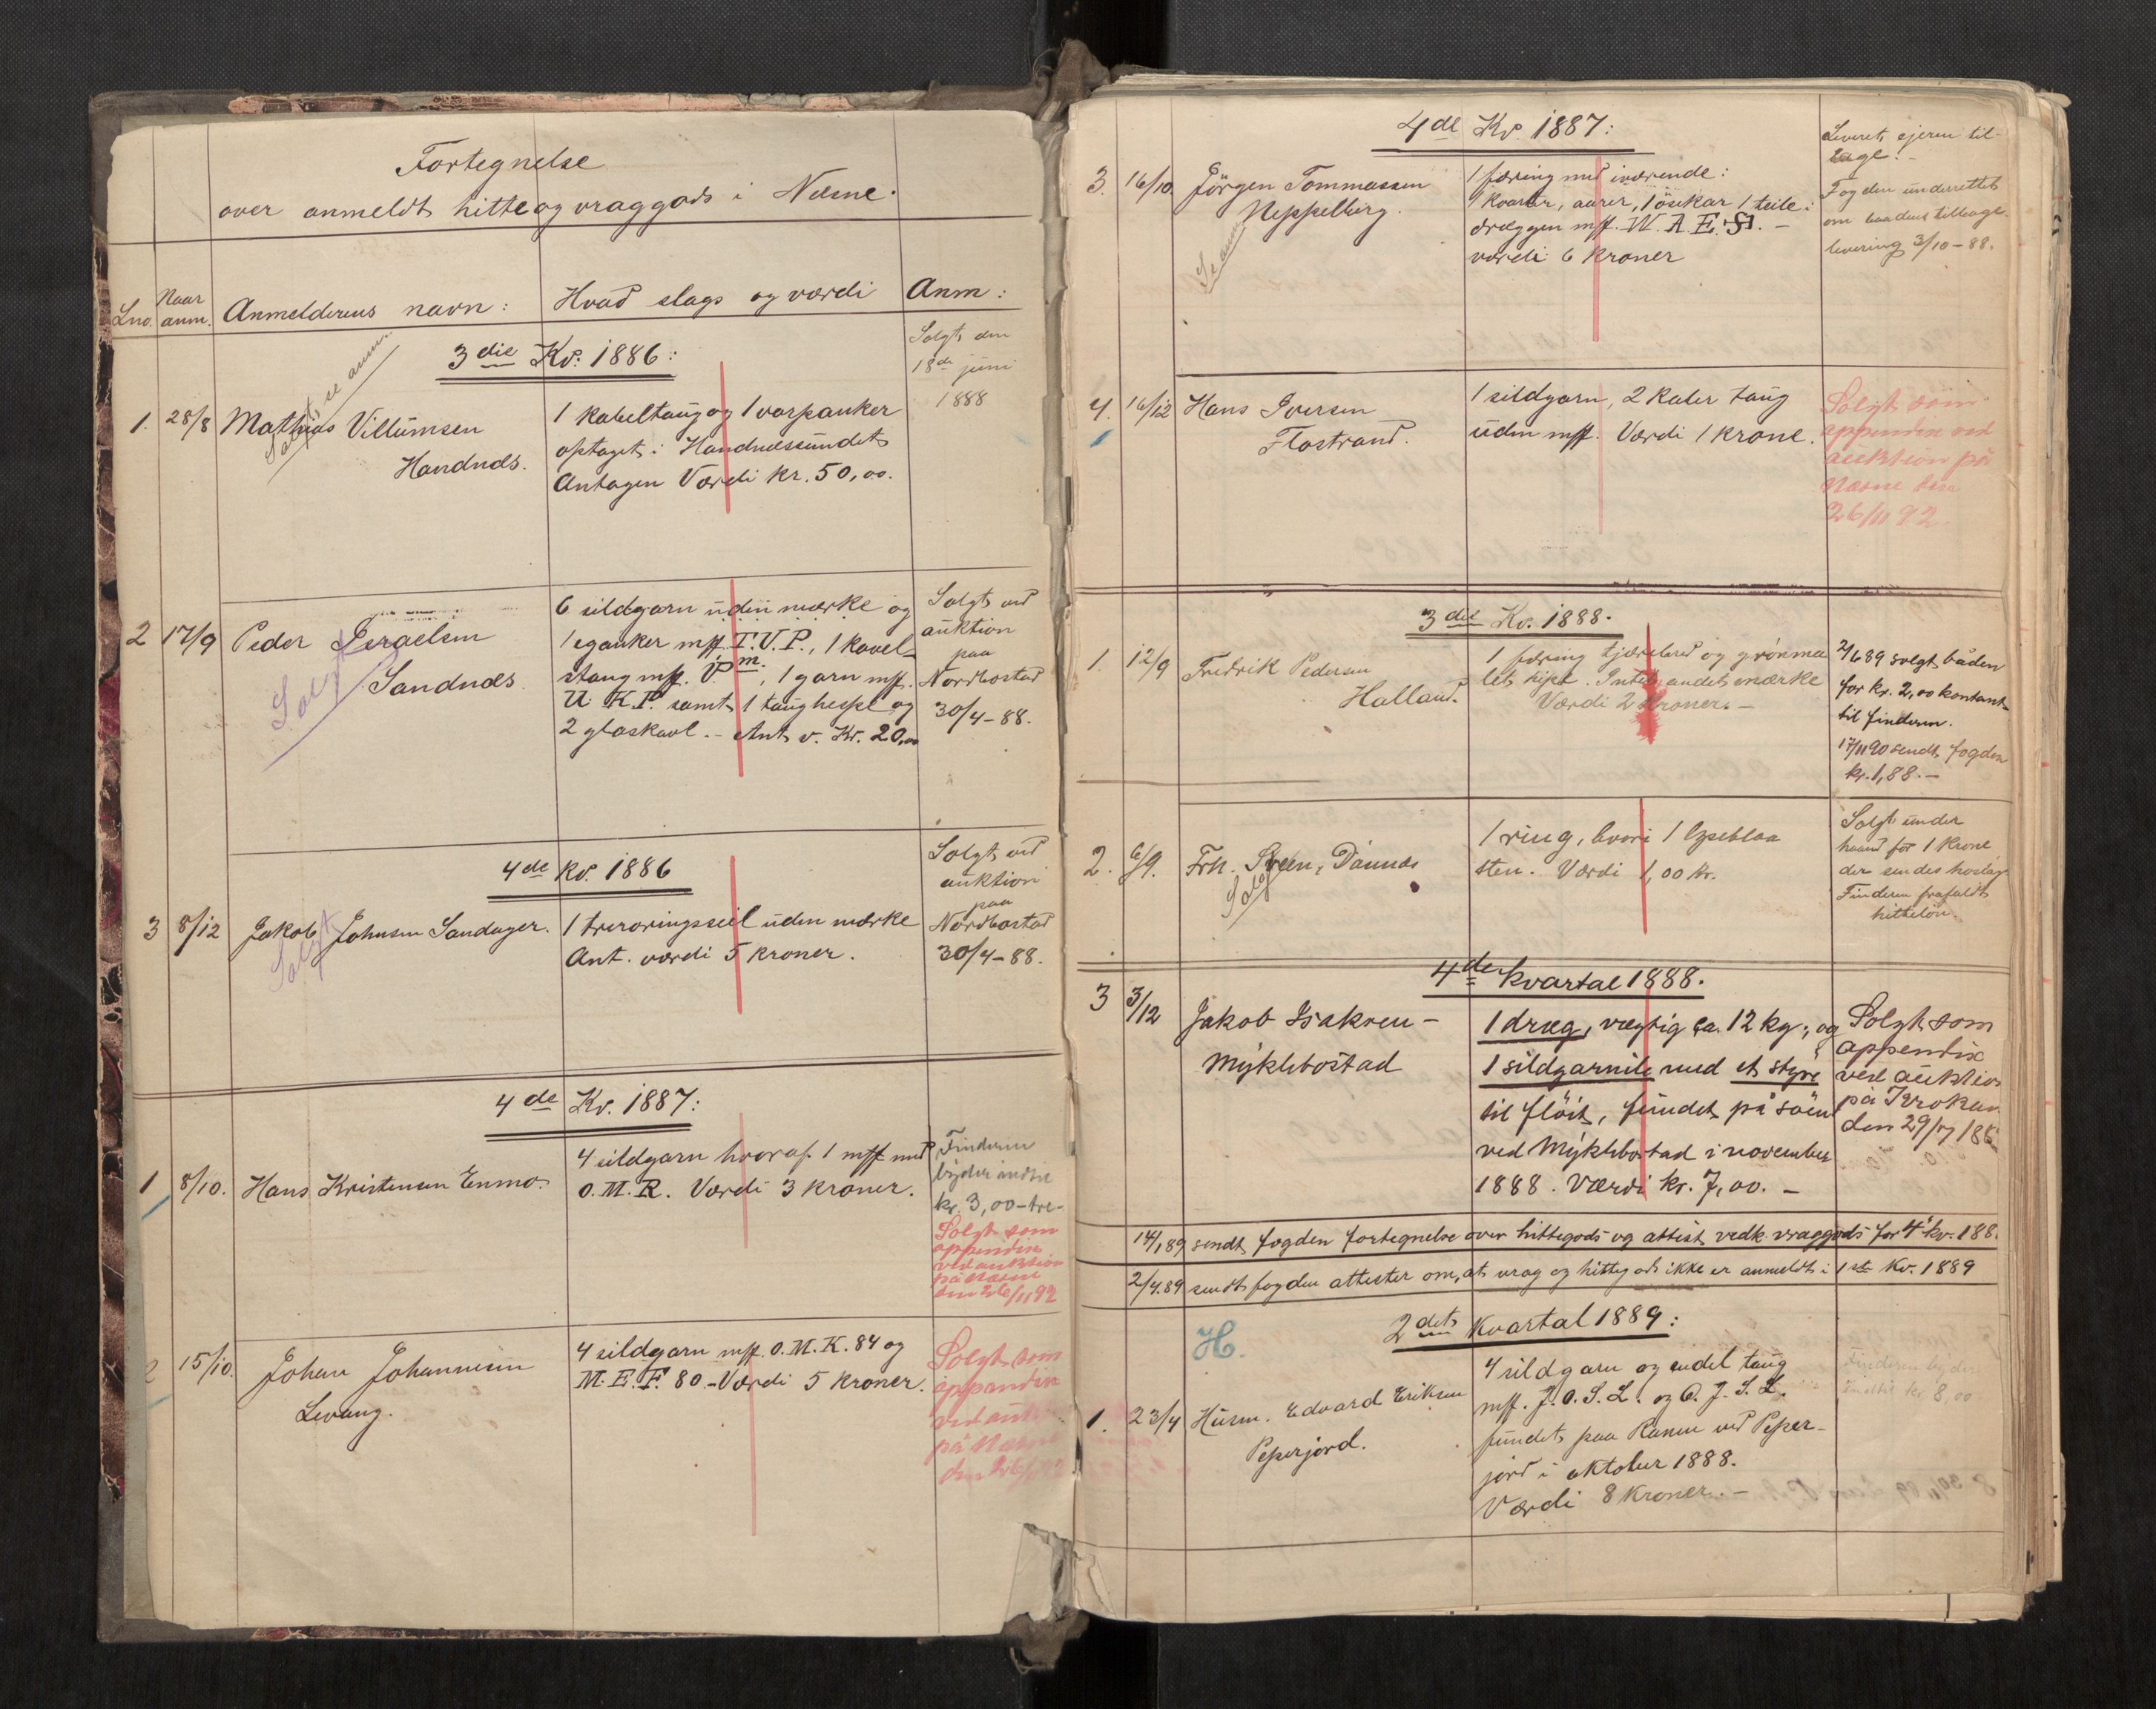 Fortegnelse
over anmeldt hitte og vraggods i Næsne.
Lno. Naar anm. Anmelderens navn: Hvad slags og værdi Anm:
3die Kv. 1886:
1. 28/8 Mathias Villumsen
Handnæs.
Solgt se anm.
1 kabeltaug og 1 varpanker
optaget i Handnæssundet
Antagen Værdi kr. 50,00.
Solgt den
18de juni
1888
2 17/9 Peder Israelsen
Sandnæs
Solgt
6 sildgarn uden mærke og
1 eganker mrk. T.V.P., 1 kavel-
stang mrk. V.P.m., 1 garn mrk.
U. K.P. samt 1 taughespe og
2 glaskavl. - Ant. v. Kr. 20,00
Solgt ved
auktion
paa
Nordbostad
30/4-88.
4de Kv. 1886
3 8/12 Jakob Johnsen Sandager.
Solgt
1 treroringsseil uden mærke
Ant. værdi 5 kroner.
Solgt ved
auktion
paa
Nordbostad
30/4-88.
4de Kv. 1887:
1 8/10. Hans Kristensen Enmo.
4 sildgarn hvoraf 1 mrk med
O.M.R. Værdi 3 kroner.
Finderen
byder indtil
kr. 3,00-tre-
Solgt som
appendix
ved auktion
på Næsne
den 26/11 92
2 15/10. Johan Johannesen
Levang.
4 sildgarn mrk. O.M.K. 84 og
M.E.F. 80. - Værdi 5 kroner.
Solgt som
appendix
ved auk
på Næsne
den 26/11 92
4de Kv. 1887:
3. 16/10 Jörgen Tommassen
Neppelberg.
Se anm.
1 færing med iværende:
aarer, 1 öskar 1 teile:
dræggen mrk. W.A.E.S. -
værdi 6 kroner
Leveret ejeren til-
bage. -
Fogden underrettet
om baadens tilbage-
levering 3/10-88.
4. 16/12 Hans Iversen
Flostrand.
1 sildgarn, 2 kaler taug
uden mrk. Værdi 1 krone.
Solgt som
appendix ved
auktion på
Næsne den
26/11 92.
3die Kv. 1888.
1. 12/9 Fredrik Pedersen
Halland.
1 færing tjærebred og grönma
let ripe. Intet andet mærke
Værdi 2 kroner. -
2/6 89 solgt båden
for kr. 2,00 kontant
til finderen.
17/11 90 sendt fogden
kr. 1,88. -
2. 6/9. Frk. Sveen, Dönnæs
Solgt
1 ring, hvori 1 lyseblaa
sten. Værdi 1,00 kr.
Solgt under
haand for 1 krone
der sendes hoslag.
Finderen frafaldt
hittelön.
4de kvartal 1888.
3 3/12 Jakob Isaksen -
Myklebostad
1 dræg, vægtig ca. 12 kg., og
1 sildgarnile med et styre
til flöit, fundet på söen
ved Myklebostad i november
1888. Værdi kr. 7,00. -
Solgt som
appendix
ved auktion
på Kroken
den 29/7 18
14/1 89 sendt fogden fortegnelse over hittegods og attest vedk. vraggods for 4. kv. 188
2/4.89 sendt fogden attester om, at vrag og hittegods ikke er anmeldt i 1ste Kv. 1889
2det kvartal 1889:
H.
1. 23/4 Husm. Edvard Eriksen
Peperjord.
4 sildgarn og endel taug
mrk. J.O.S.L. og O.J.S.L.
fundet paa Ranen ved Peper-
jord i oktober 1888.
Værdi 8 kroner. -
Finderen byder
indtil kr. 8,00